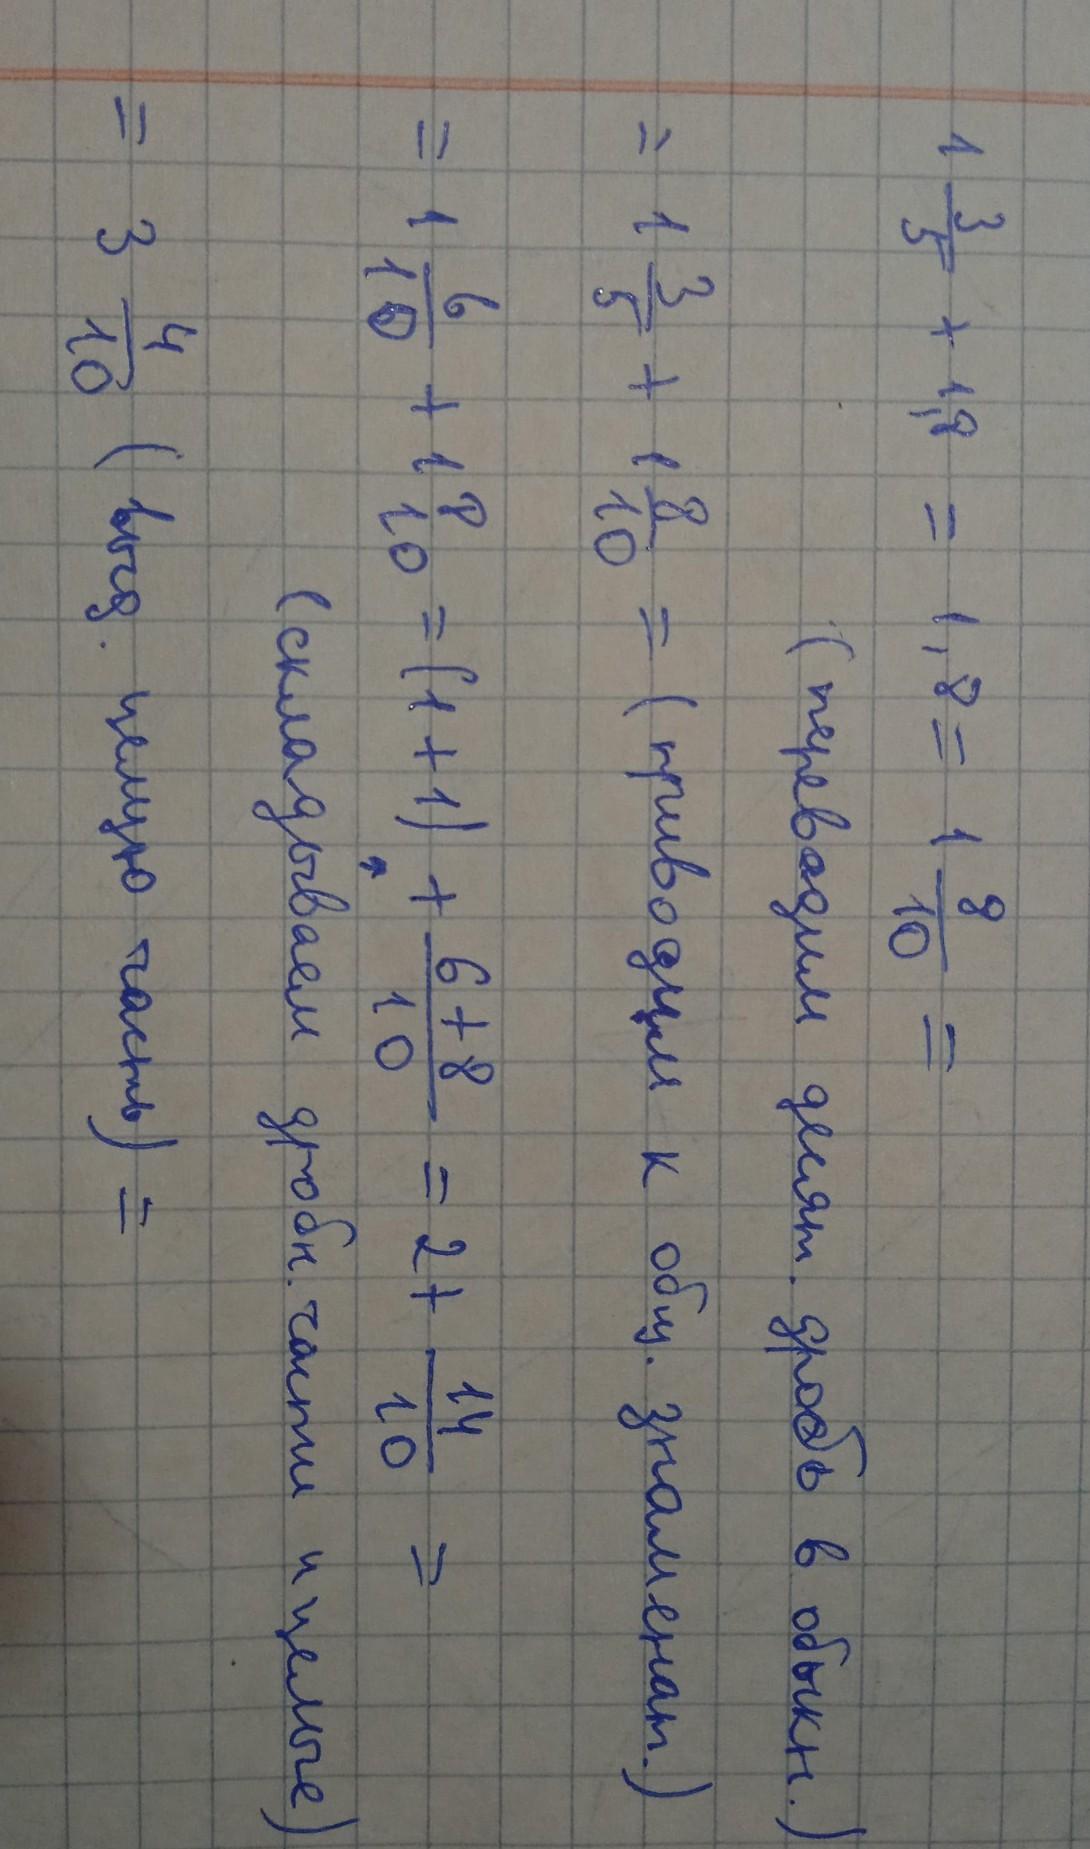 1 3/5 + 1,8 = 1,8 = 1 8/10 =
(переводим десят. дробь в обыкн.)
= 1 3/5 + 1 8/10 = (приводим к общ. знаменат.)
= 1 6/10 + 1 8/10 = (1+1) + (6+8)/10 = 2 + 14/10 =
(складываем дробн. части и целые)
= 3 4/10 (выд. целую часть) =